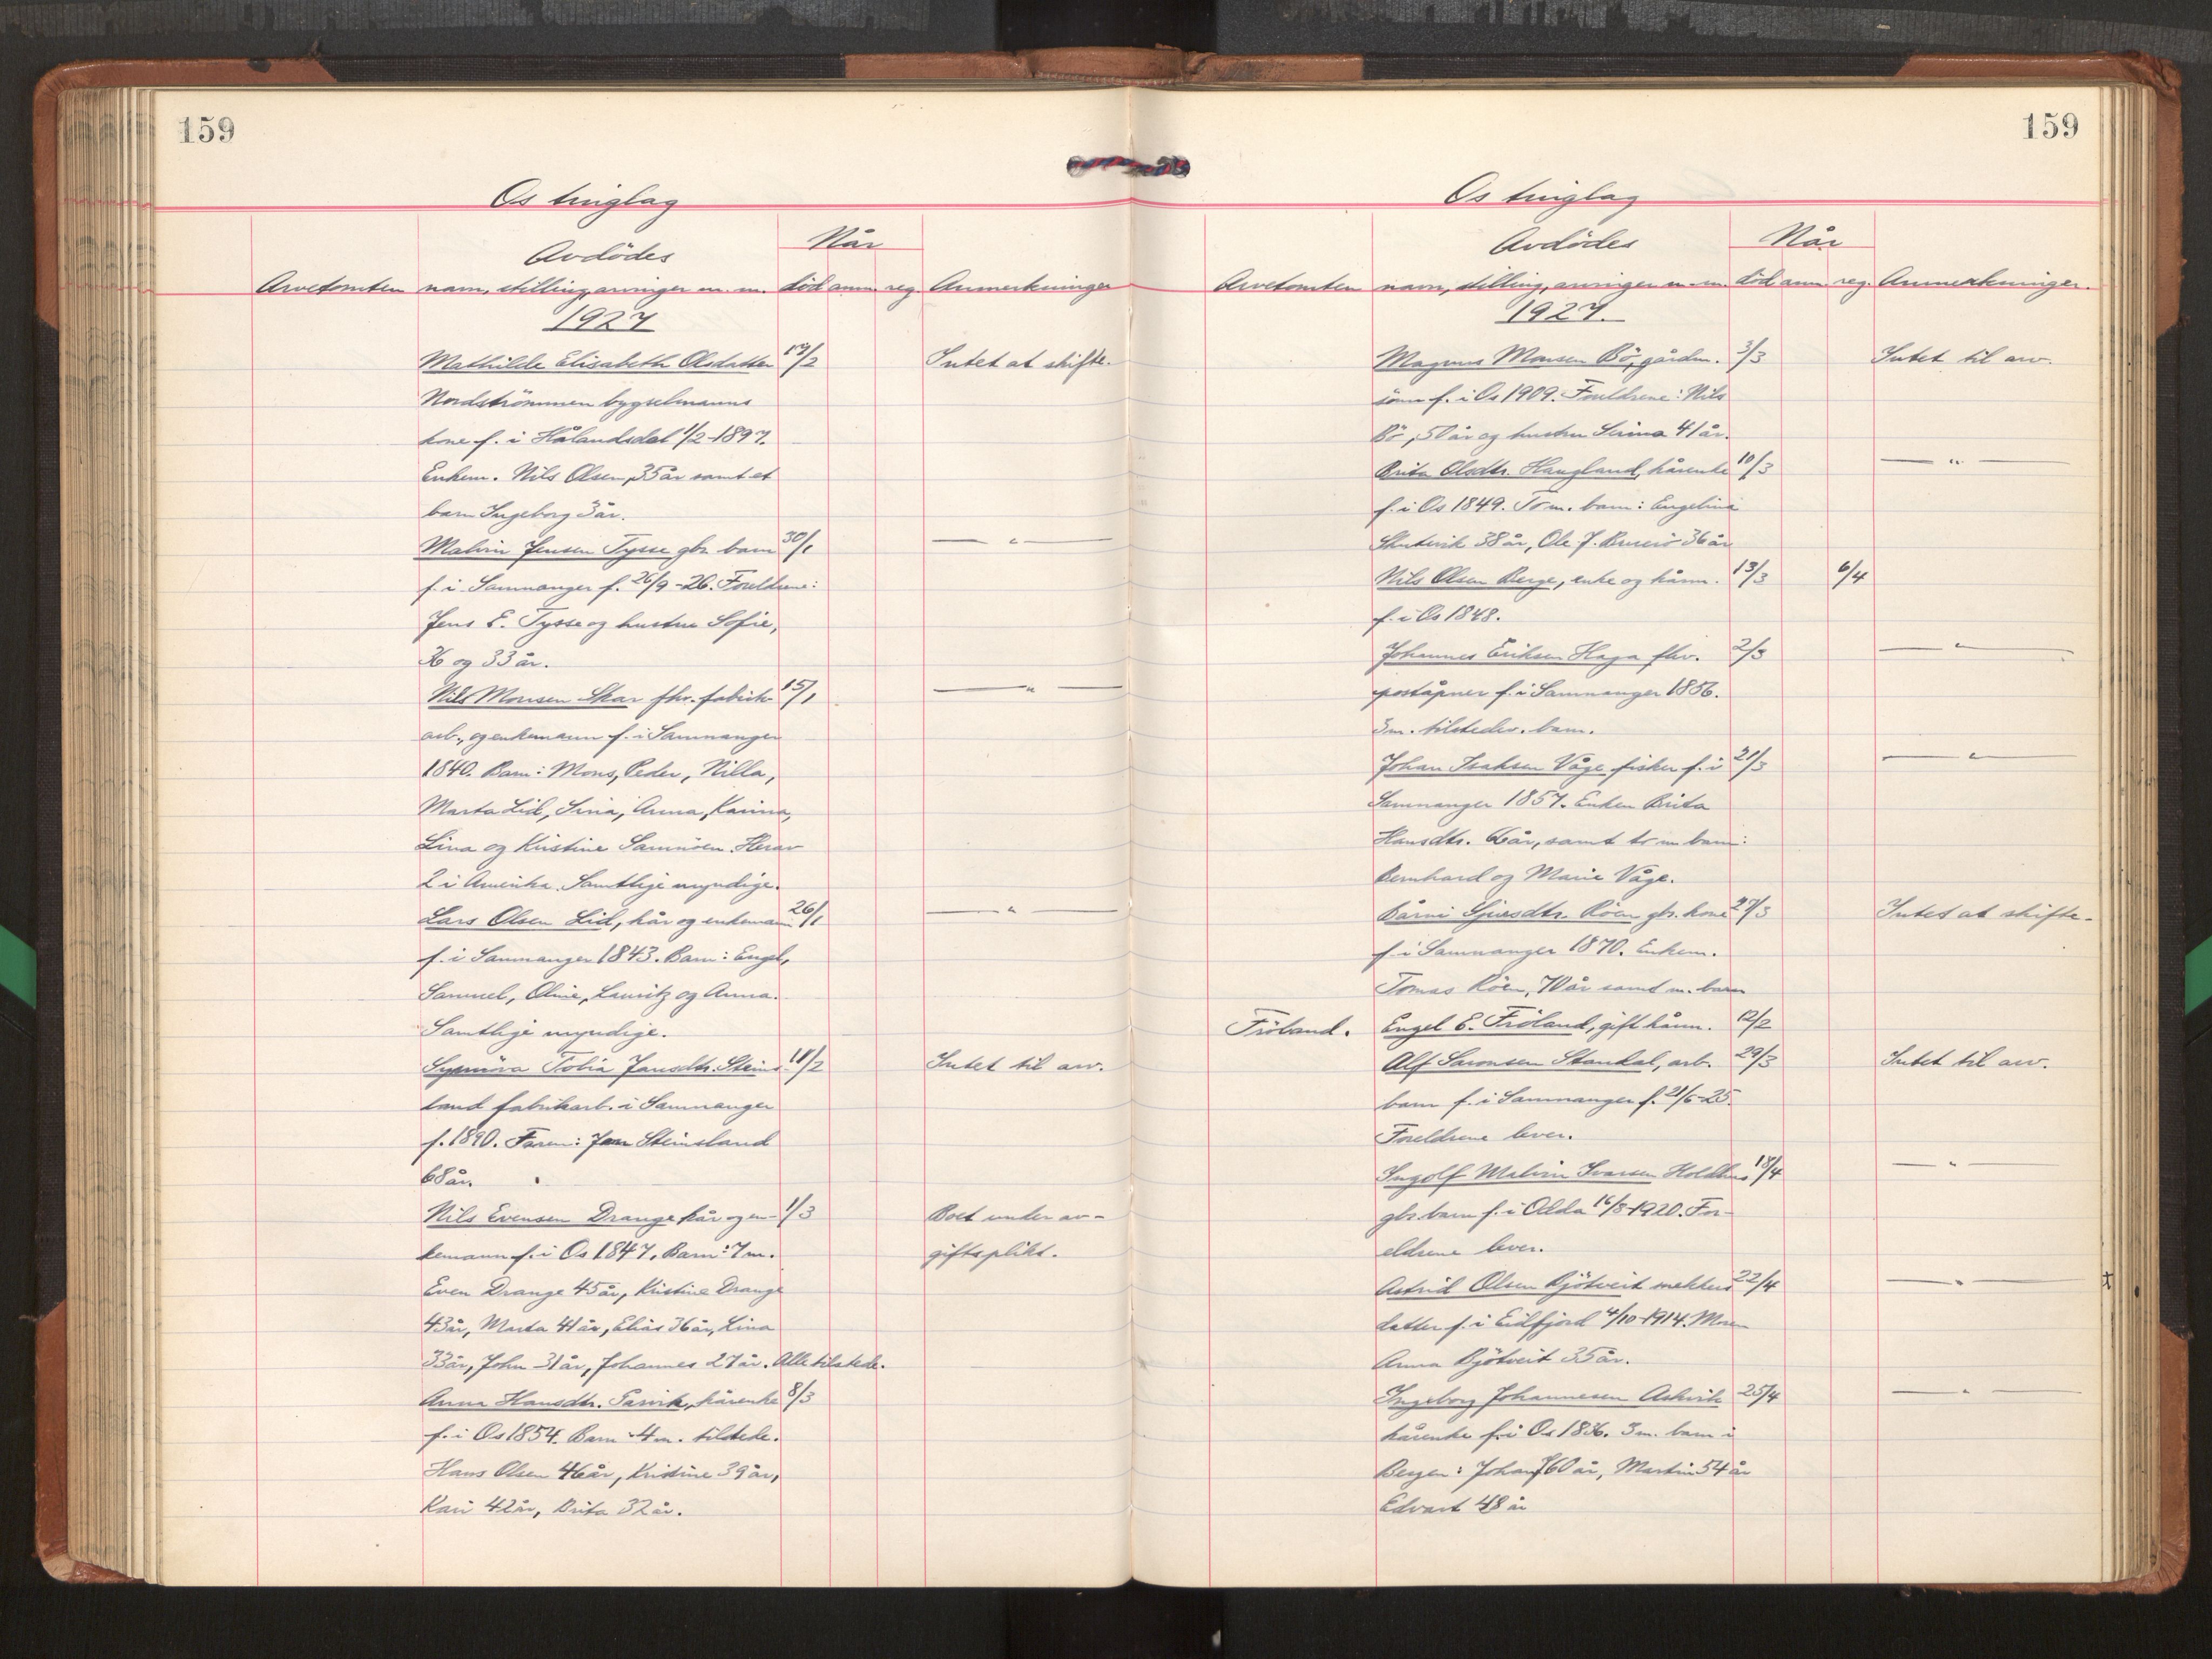 159
Os tinglag
Når
Avdödes
Arvetomten navn, stilling, arvinger m.m. död anm. reg. Anmerkninger
1927
Mathilde Elisabeth Olsdatter 17/2 Intet at skifte.
Nordströnnen bygselmanns
kone f. i Hålandsdal 1/2-1897.
Enkem. Nils Olsen, 35 år samt et
barn Ingeborg 3 år.
Malvin Jensen Tysse gbr. barn 30/1 — " —
f. i Samnanger f. 26/9-26. Foreldrene:
Jens E. Tysse og hustru Sofie,
36 og 33 år.
Nils Monsen Skar fhv. fabrik- 15/1 — " —
arb., og enkemann f. i Samnanger
1840. Barn: Mons, Peder, Nilla,
Marta Lid, Sina, Anna, Karina,
Lina og Kristine Samnöen. Herav
2 i Amerika. Samtlige myndige.
Lars Olsen Lid, kår og enkemann 26/1 — " —
f. i Samnanger 1843. Barn: Engel,
Samuel, Oline, Lauritz og Anna.
Samtlige myndige.
Synnöva Tobia Jansdtr. Steins- 11/2 Intet til arv.
land fabrikarb. i Samnanger
f. 1890. Faren: Jan Steinsland
68 år.
Nils Evensen Drange kår og en- 1/3 Boet under av-
kemann f. i Os 1847. Barn: 7 m. giftsplikt.
Even Drange 45 år, Kristine Drange
43 år, Marta 41 år, Elias 36 år, Lina
33 år, John 31 år, Johannes 27 år. Alle tilstede.
Anna Hansdtr. kårenke 8/3
f. i Os 1854. Barn: 4 m. tilstede.
Hans Olsen 46 år, Kristine 39 år,
Kari 42 år, Brita 32 år.
159
Os tinglag
Når
Avdödes
Arvetomten navn, stilling, arvinger m.m. död anm. reg. Anmerkninger.
1927.
Magnus Monsen Bö, gårdm. 3/3 Intet til arv.
sönn f. i Os 1909. Foreldrene: Nils
Bö, 50 år og hustru Serina 41 år.
Brita Olsdtr. Haugland, kårenke 10/3 — " —
f. i Os 1849. To m. barn: Engelina
Skutevik 38 år, Ole J. 36 år
Nils Olsen Berge, enke og kårm. 13/3 6/4
f. i Os 1848.
Johannes Eriksen Haga fhv. 2/3 — " —
poståpner f. i Samnanger 1856.
3 m. tilstedev. barn.
Johan Isaksen Våge fisker f. i 21/3 — " —
Samnanger 1857. Enken Brita
Hansdtr. år, samt to m barn:
Bernhard og Marie Våge.
Sjursdtr. Röen gbr. kone 27/3 Intet at skifte.
f. i Samnanger 1870. Enkem.
Tomas Röen, 70 år samt m. barn
Fröland. Engel E. Fröland, gift kårm. 12/2
Alf Saronsen Standal, arb. 29/3 Intet til arv.
barn f. i Samnanger f. 21/6-25.
Foreldrene lever.
Ingolf Malvin Ivarsen Holdhus 18/4 — " —
gbr. barn f. i Odda 16/8-1920. For-
eldrene lever.
Astrid Olsen Bjötveit snekkers 22/4 — " —
datter f. i Eidfjord 4/10-1914. Moren
Anna Bjötveit 35 år.
Ingeborg Johannesen Askvik 25/4 — " —
kårenke f. i Os 1836. 3 m. barn i
Bergen: Johan 60 år, Martin 54 år
Edvart 48 år